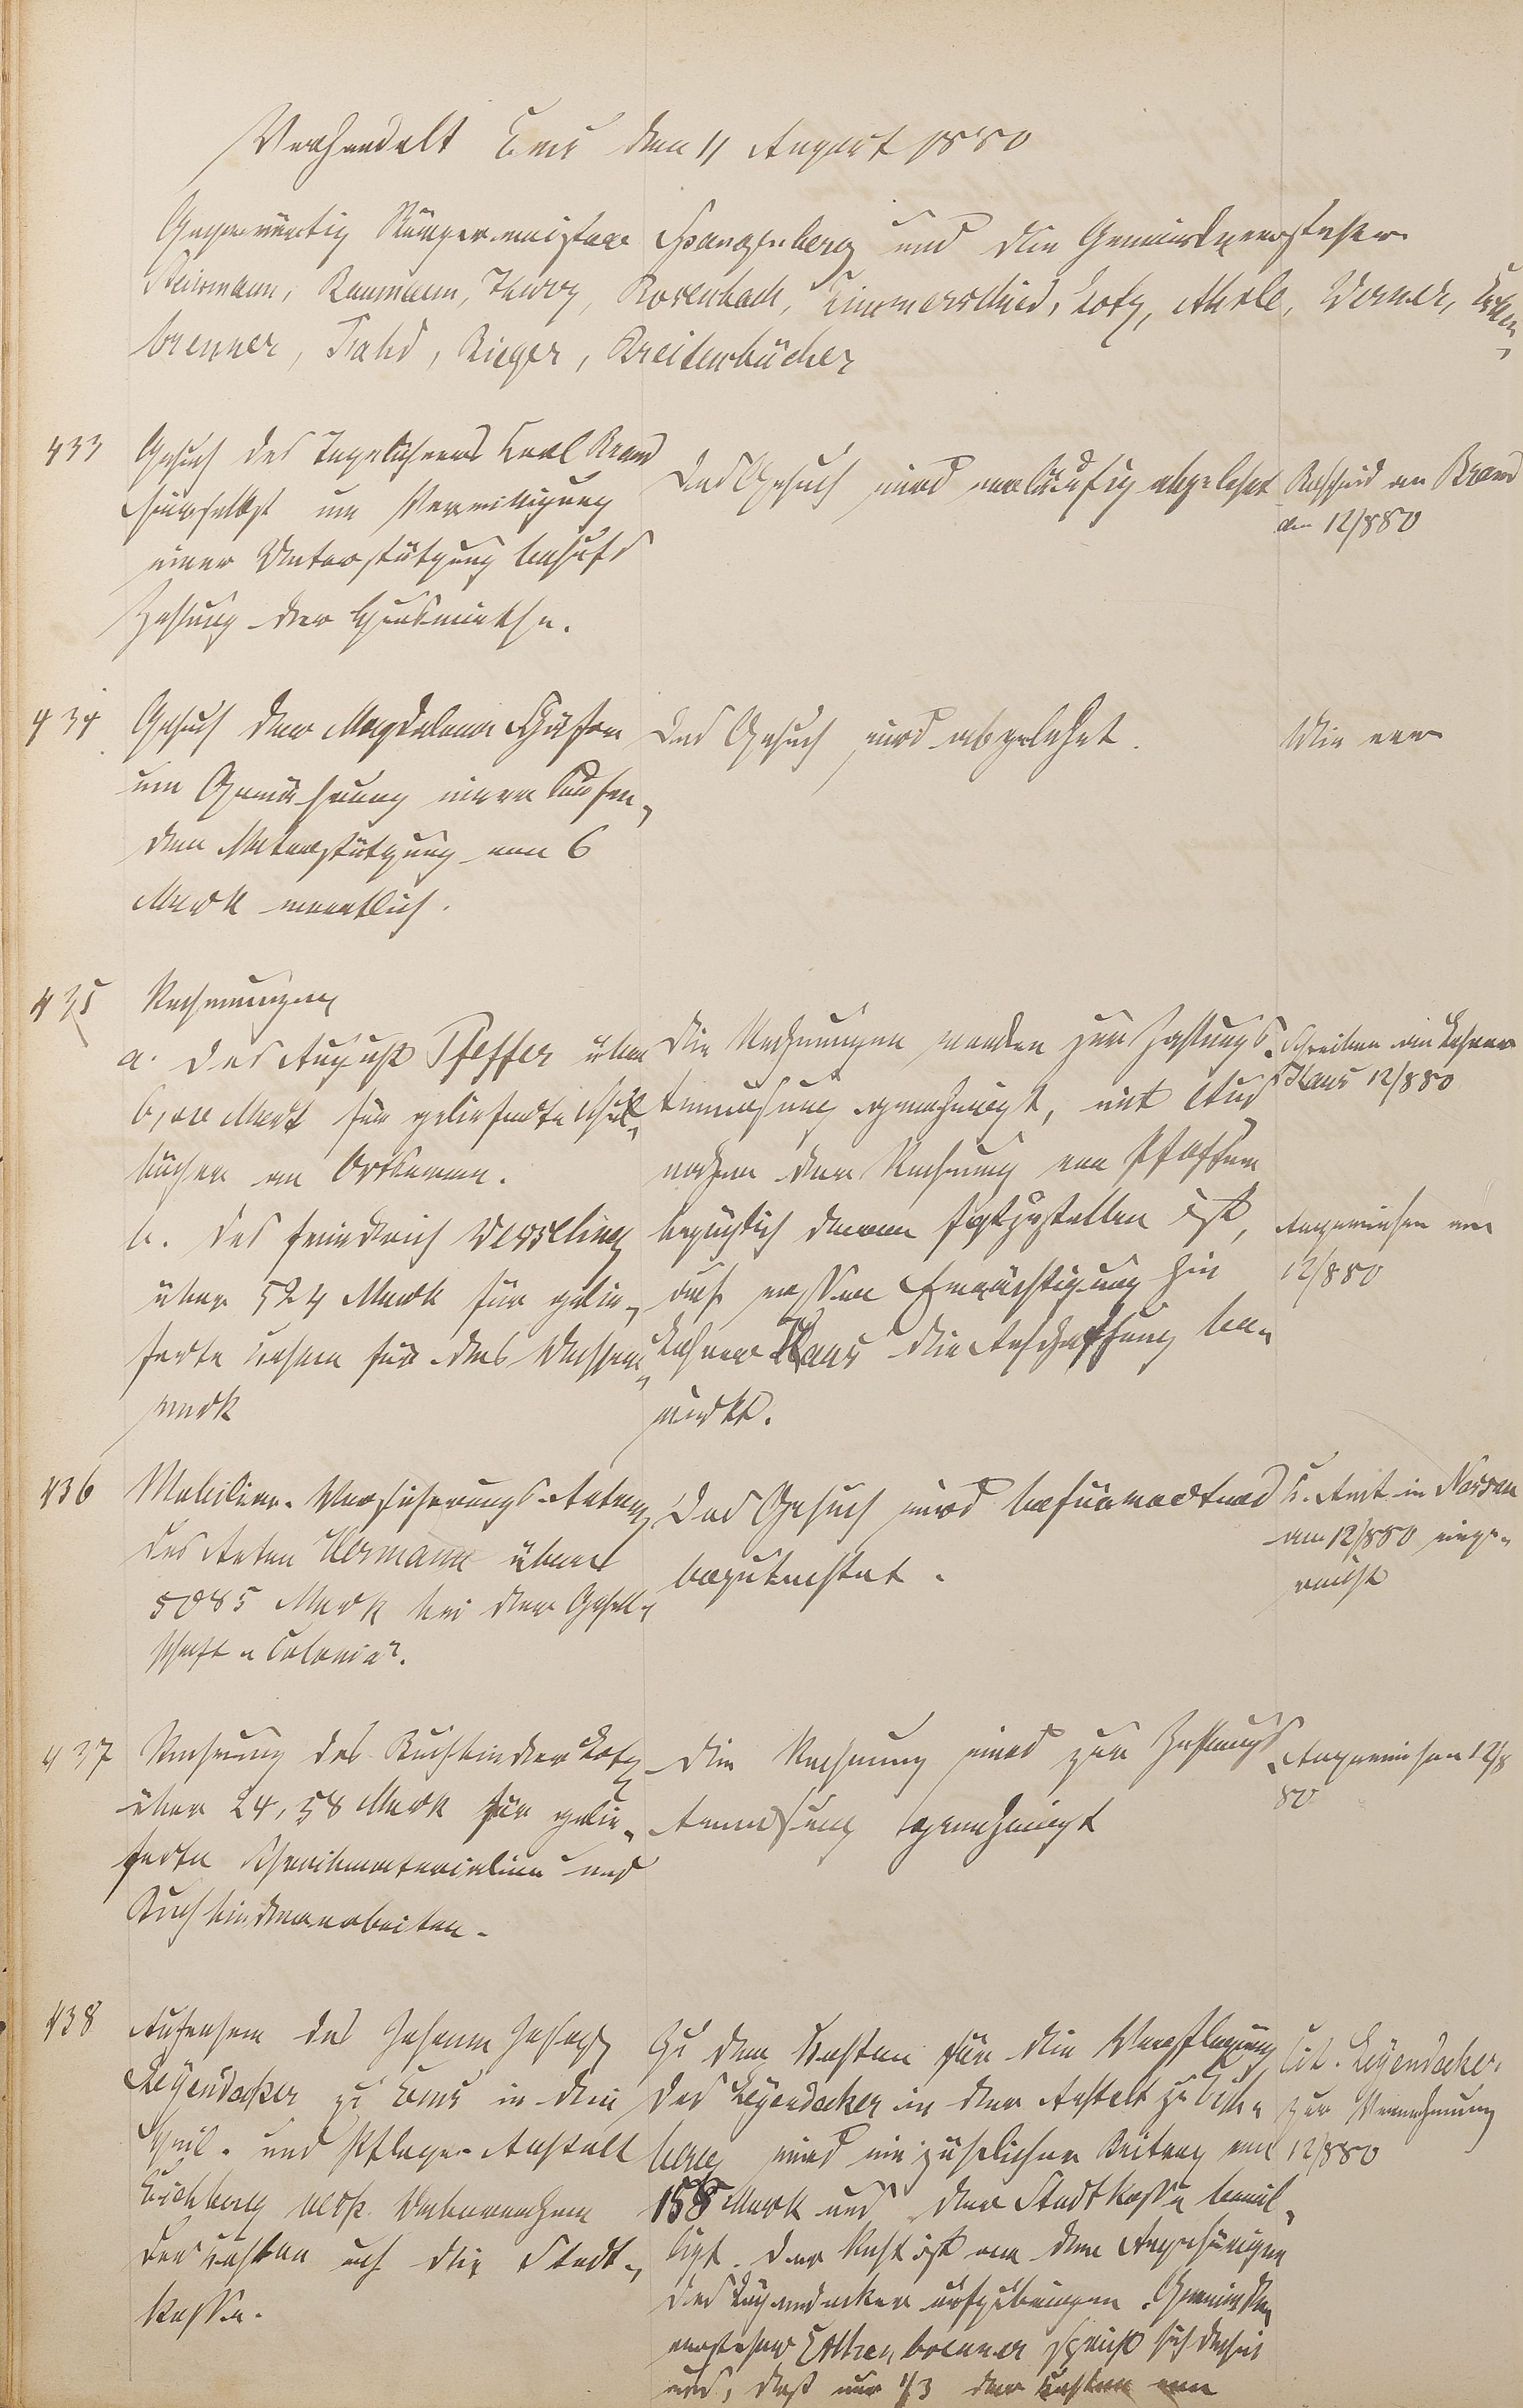 Verhandelt Ems den 11 August 1880
Gegenwärtig Bürgermeister Spangenberg und die Gemeindevorsteher
Reismann, Baumann, Thorz, Rosenbach, Zimmerschied, Lotz, Werner, Eschen-
brenner, Rieger, Breitenbücher
433
Gesuch des Tagelöhners Karl Brand
hierselbst um Verwilligung
einer Unterstützung behufs
Zahlung der Hausmiethe.
Das Gesuch wird vorläufig abgelehnt
Bescheid an Brand
den 12/8 80
434
Gesuch der Magdalena Schäfer
um Gewährung einer laufen-
den Unterstützung von 6
Mark monatlich.
Das Gesuch wird abgelehnt.
Wie vor
435
Rechnungen
a. des August Pfeffer über
Mark für gelieferte Schul-
bücher an Ortsarme.
b. des Friedrich
über 524 Mark für gelie-
ferte Kohlen für das Wasser-
werk
Die Rechnungen werden zur Zahlungs-
anweisung genehmigt, mit Aus
nahme der Rechnung von Pfeffer
bezüglich deren festzustellen ist,
auf wessen Ermächtigung hin
Lehrer Klaus die Anschaffung be-
wirkt.
Schreiben an Lehrer
Klaus 12/8 80
Angewiesen am
12/8 80
436
Mobiliar-Versicherungs-Antrag
des Anton Hermann über
5085 Mark bei der Gesell-
schaft "Colonia".
Das Gesuch wird befürwortend
begutachtet.
K. Amt in Nassau
am 12/8 80 einge-
reicht
437
Rechnung des Buchbinder Lotz
über 24,58 Mark für gelie-
ferte Schreibmaterialien und
Buchbinderarbeiten.
Die Rechnung wird zur Zahlungs
anweisung genehmigt
Angewiesen 12/8
80
438
Aufnahme des Johann Joseph
Leyendecker zu Ems in die
Heil- und Pflege-Anstalt
Eichberg resp. Übernahme
der Kosten auf die Stadt-
kasse.
Zu den Kosten für die Verpflegung
des Leyendecker in der Anstalt zu Eich-
berg wird ein jährlicher Beitrag von
158 Mark aus der Stadtkasse bewil-
ligt. Der Rest ist von den Angehörigen
des Leyendecker aufzubringen. Gemeinde
vorsteher Eschenbrenner spricht sich dahin
aus, daß nur 1/3 der Kosten von
Cit. Leyendecker
zur Vernehmung
12/8 80